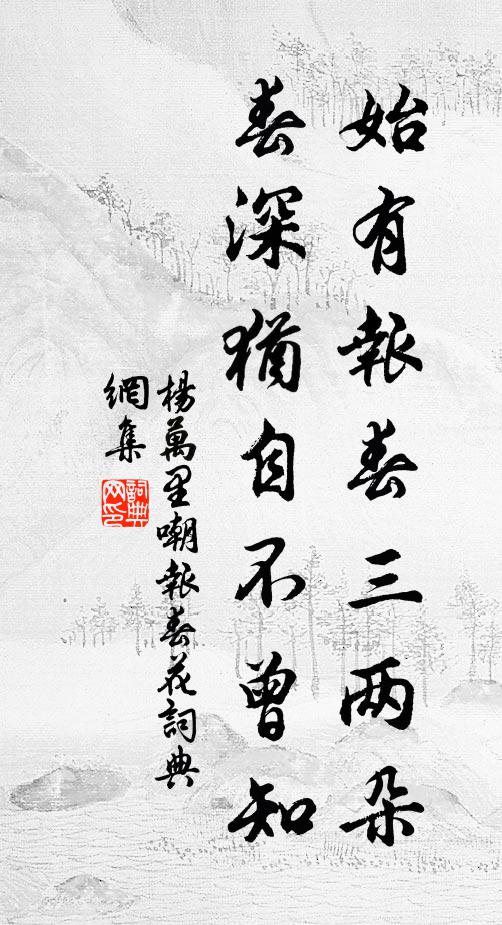 始有報春三两朵
春深猶自不曾知
楊萬里嘲報春花詞典
網集
詞典網印